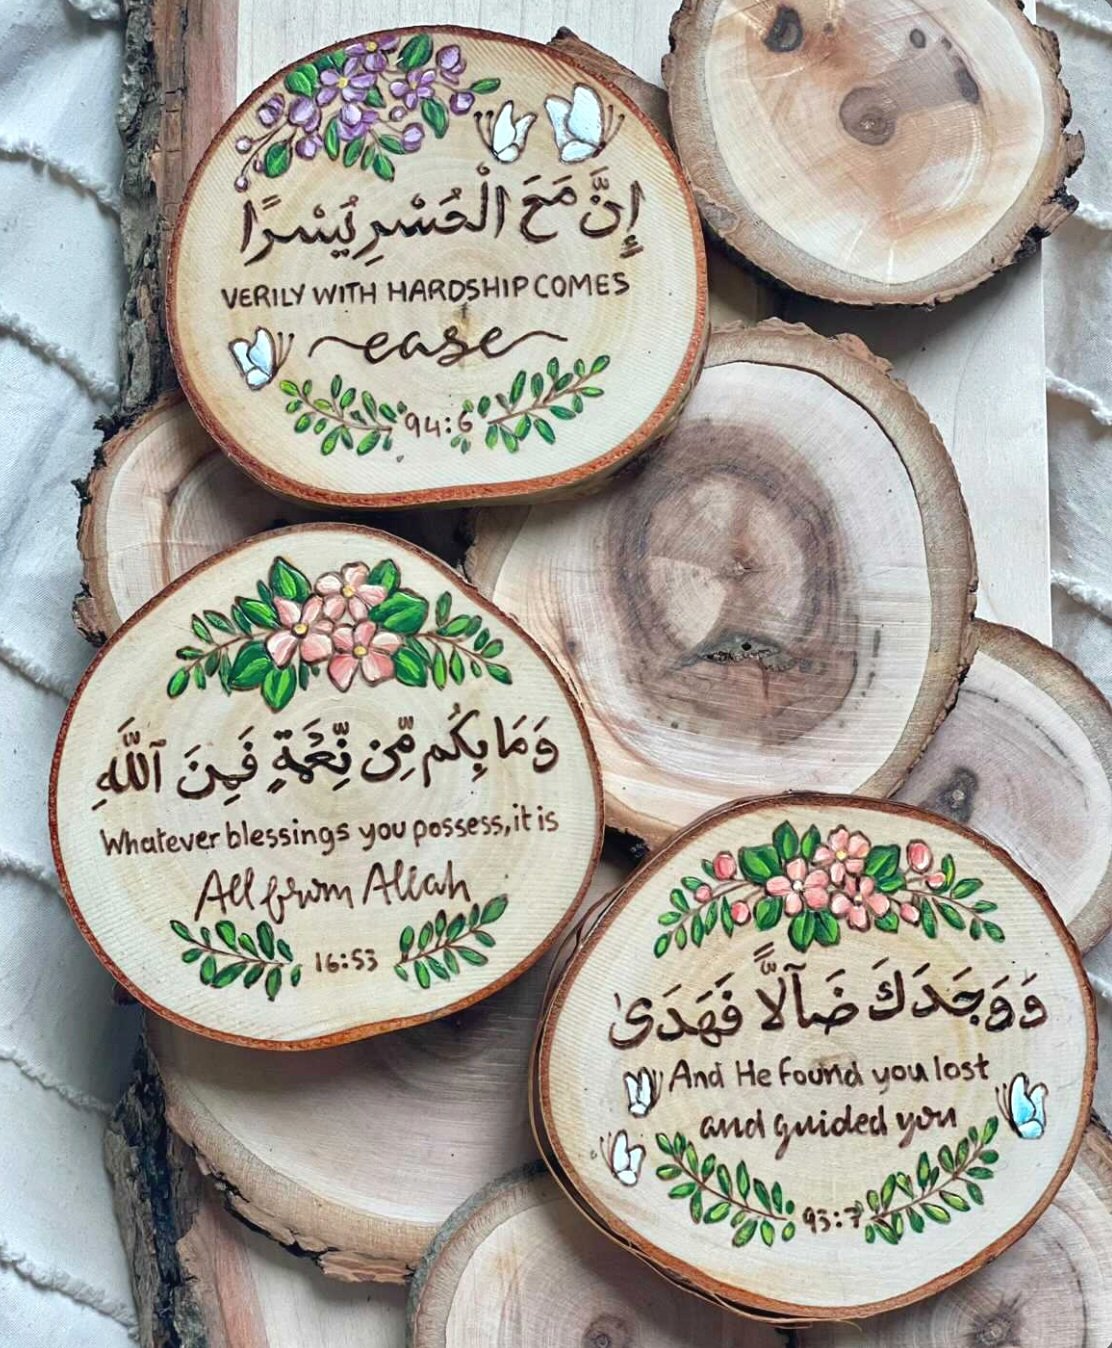 إِنَّ مَعَ الْعُسْرِ يُسْرًا
VERILY WITH HARDSHIP COMES
ease
94:6
وَمَا بِكُم مِّن نِّعْمَةٍ فَمِنَ ٱللَّهِ
Whatever blessings you possess, it is
All from Allah
16:53
وَوَجَدَكَ ضَآلًّا فَهَدَىٰ
And He found you lost
and guided you
93:7